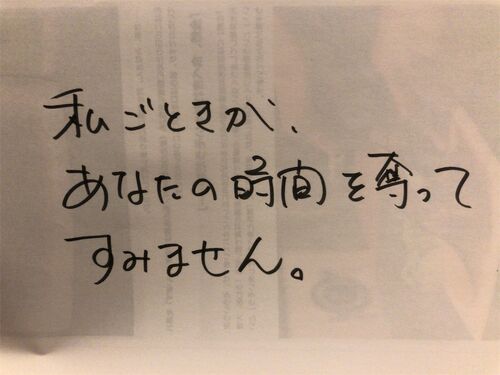 私ごときが、
あなたの時間を奪って
すみません。